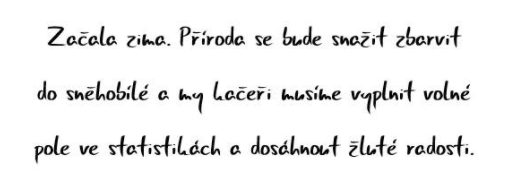 Začala zima. Příroda se bude snažit zbarvit
do sněhobílé a my kačeři musíme vyplnit volné
pole ve statistikách a dosáhnout žluté radosti.